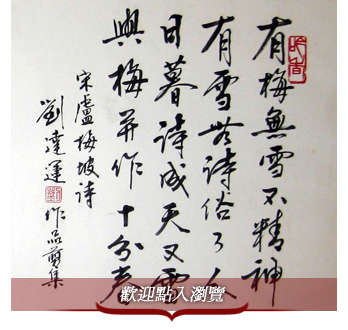 有梅無雪不精神
有雪無詩俗了人
日暮詩成天又雪
與梅并作十分春
宋盧梅坡詩
劉達運
作品剪集
歡迎點入瀏覽